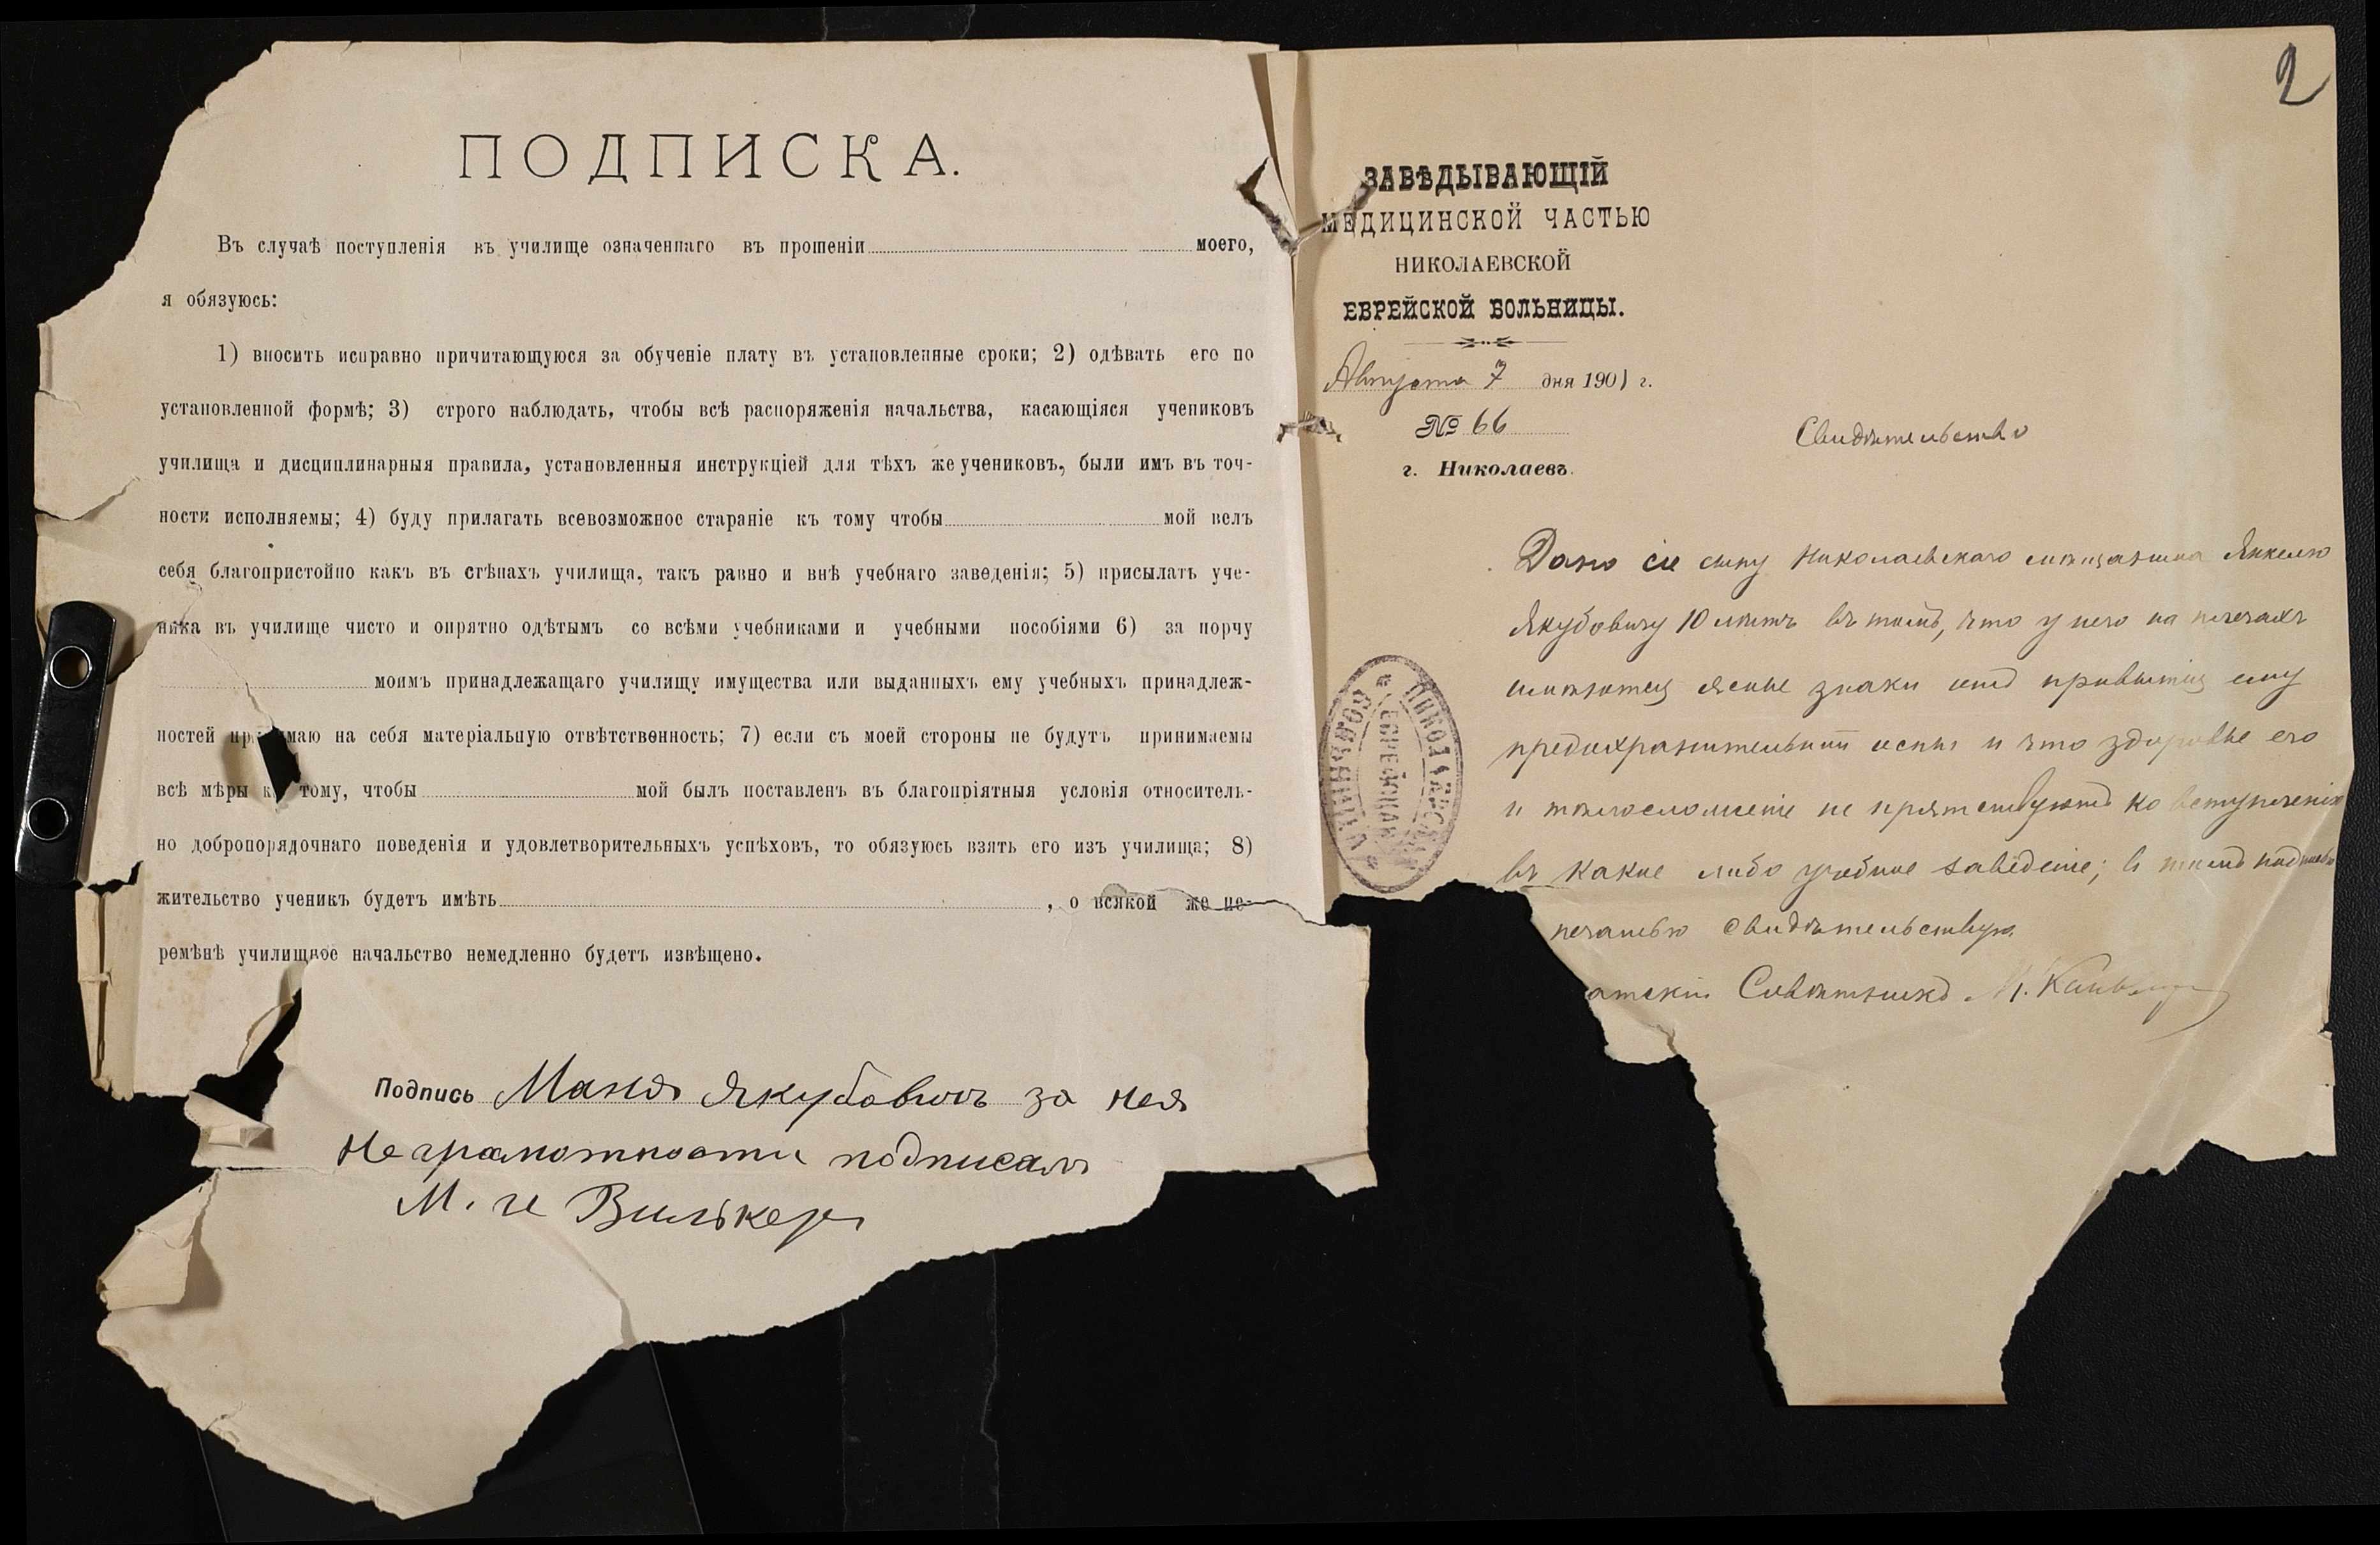 ПОДПИСКА.
Въ случаѣ поступленія въ училище означеннаго въ прошеніи моего,
я обязуюсь:
1) вносить исправно причитающуюся за обученіе плату въ установленные сроки; 2) одѣвать его по
установленной формѣ; 3) строго наблюдать, чтобы всѣ распоряженія начальства, касающіяся учениковъ
училища и дисциплинарныя правила, установленныя инструкціей для тѣхъ же учениковъ, были имъ въ точ-
ности исполняемы; 4) буду прилагать всевозможное стараніе къ тому чтобы мой велъ
себя благопристойно какъ въ стѣнахъ училища, такъ равно и внѣ учебнаго заведенія; 5) присылать уче-
ника въ училище чисто и опрятно одѣтымъ со всѣми учебниками и учебными пособіями 6) за порчу
моимъ принадлежащаго училищу имущества или выданныхъ ему учебныхъ принадлеж-
ностей принимаю на себя матеріальную отвѣтственность; 7) если съ моей стороны не будутъ принимаемы
всѣ мѣры к тому, чтобы мой былъ поставленъ въ благопріятныя условія относитель-
но добропорядочнаго поведенія и удовлетворительныхъ успѣховъ, то обязуюсь взять его изъ училища; 8)
жительство ученикъ будетъ имѣть , о всякой же пе-
ремѣнѣ училищное начальство немедленно будетъ извѣщено.
Подпись Маня Якубовичъ за нея
неграмотности подписалъ
М. Вилькеръ
2
ЗАВѢДЫВАЮЩІЙ
МЕДИЦИНСКОЙ ЧАСТЬЮ
НИКОЛАЕВСКОЙ
ЕВРЕЙСКОЙ БОЛЬНИЦЫ.
Августа 7 дня 1901 г.
№ 66
г. Николаевъ.
Свидѣтельство
Дано сіе сыну Николаевскаго мѣщанина Янкелю
Якубовичу 10 лѣтъ въ томъ, что у него на плечахъ
имѣются ясные знаки отъ привытія ему
предохранительной оспы и что здоровье его
и тѣлосложеніе не прятствуютъ ко вступленію
въ какое либо учебное заведеніе; в томъ подписью
печатью свидѣтельствую
атскій Совѣтникъ М.
НИКОЛАЕВСКАЯ
ЕВРЕЙСКАЯ
БОЛЬНИЦА